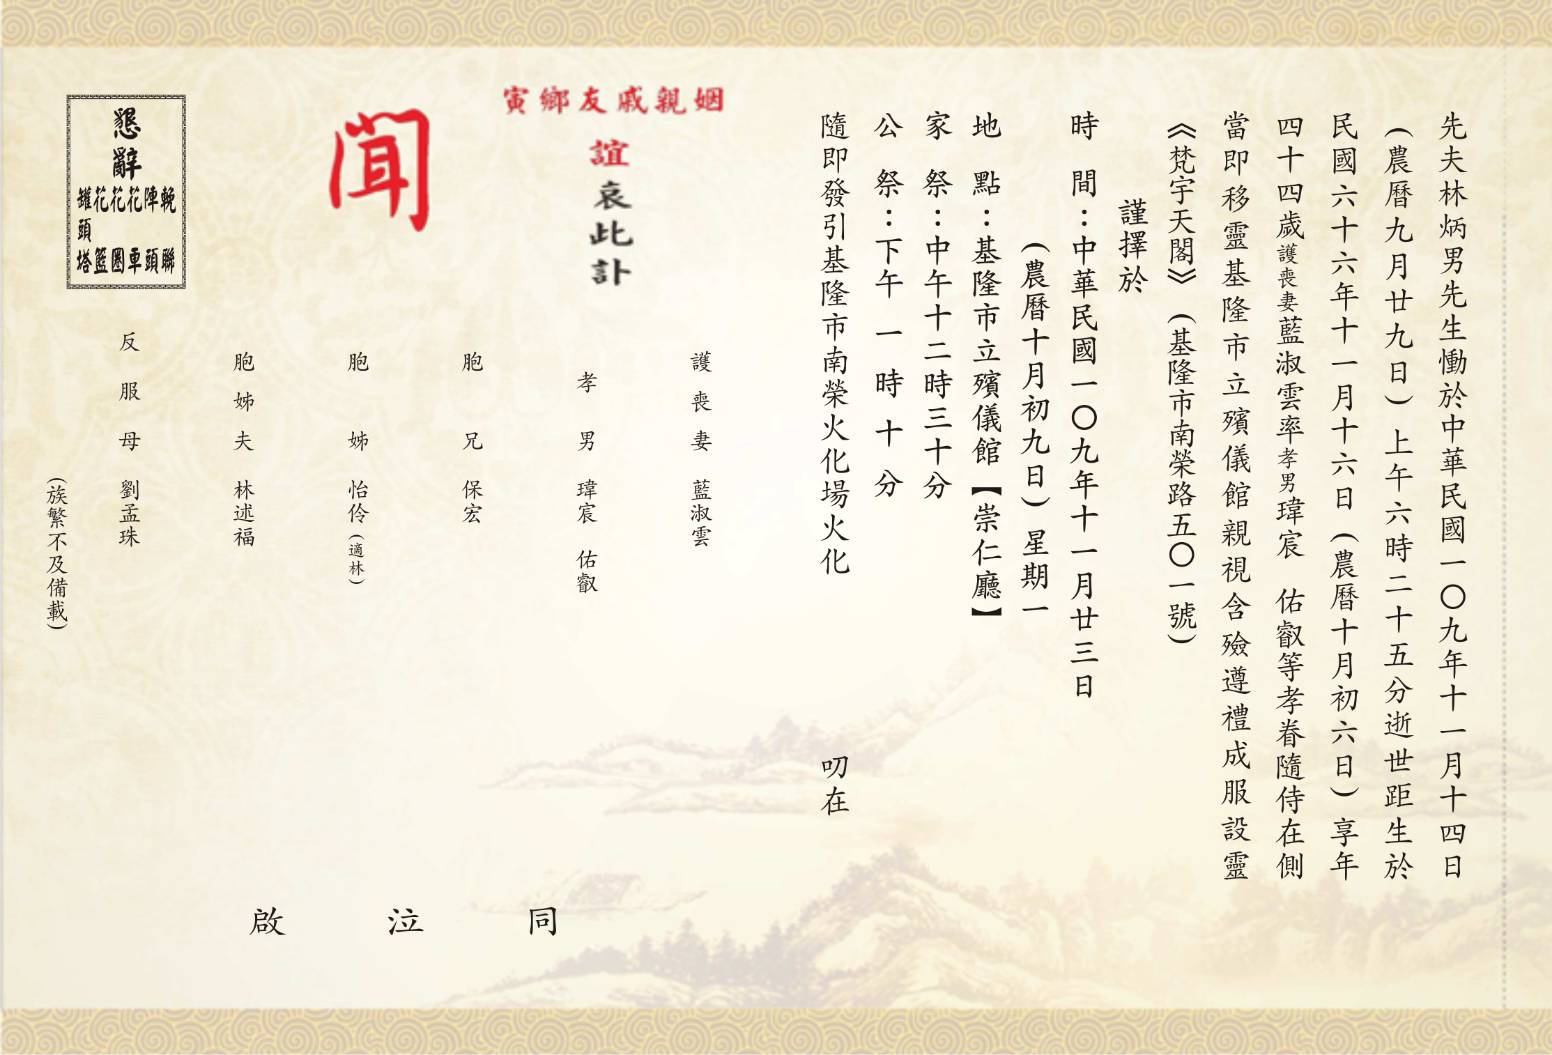 先夫林炳男先生慟於中華民國一〇九年十一月十四日
(農曆九月廿九日)上午六時二十五分逝世距生於
民國六十六年十一月十六日(農曆十月初六日)享年
四十四歲護喪妻藍淑雲率孝男瑋宸 佑叡等孝眷隨侍在側
當即移靈基隆市立殯儀館親視含殮遵禮成服設靈
《梵宇天閣》(基隆市南榮路五〇一號)
謹擇於
時間：中華民國一〇九年十一月廿三日
(農曆十月初九日)星期一
地點：基隆市立殯儀館【崇仁廳】
家祭：中午十二時三十分
公祭：下午一時十分
隨即發引基隆市南榮火化場火化 叨在
姻親戚友鄉寅
誼哀此訃
聞
護喪妻 藍淑雲
孝男 瑋宸 佑叡
胞兄 保宏
胞姊 怡伶(適林)
胞姊夫 林述福
反服母 劉孟珠
(族繁不及備載)
同泣啟
懇辭
輓聯
陣頭
花車
花圈
花籃
罐頭塔